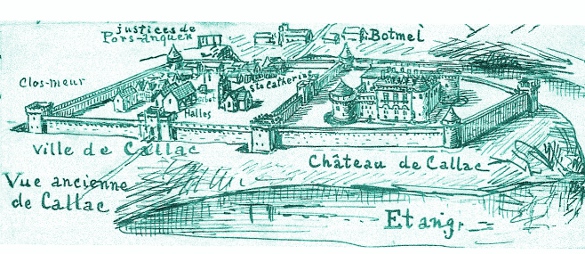 justices de
Pors-anquen
Botmel
Clos-meur
Ste Catherine
Halles
Ville de Callac
Château de Callac
Vue ancienne
de Callac
Etang